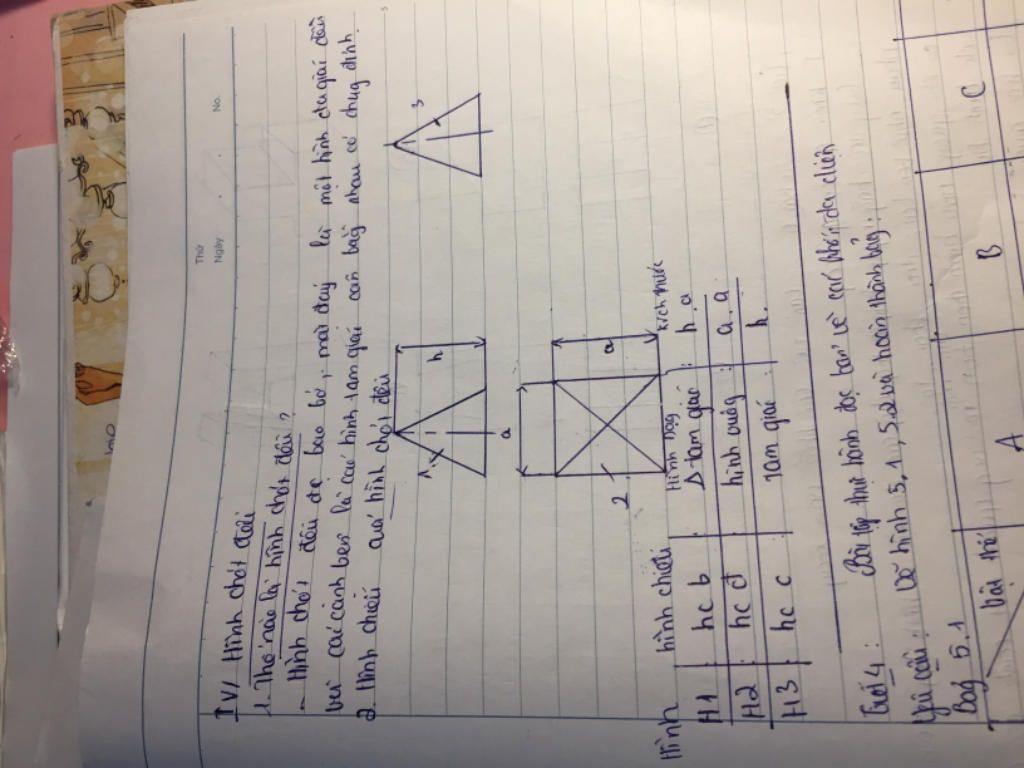 Thứ
Ngày
No.
IV/ Hình chóp đều
1. Thế nào là hình chóp đều?
- Hình chóp đều đc bao bở, mặt đáy là một hình đa giác đều
và các cạnh bên là các hình tam giác cân bằg nhau có chug đỉnh
2. Hình chiếu của hình chóp đều
1
h
3
a
a
2
Hình
hình chiếu
Hình dạg
kích thước
H1
hc b
Δ tam giác
h a
H2
hc đ
hình vuôg
a a
H3
hc c
Tam giác
h
Bài tập thực hành đọc bản vẽ các khối đa diện
Yêu cầu: Vẽ hình 5,1,5,2 và hoàn thành bảg:
Bảg 5.1
Vật thể
A
B
C